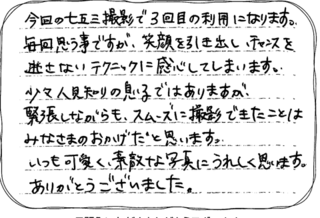 今回の七五三撮影で3回目の利用になります。
毎回思う事ですが、笑顔を引き出し、チャンスを
逃さないテクニックに感心してしまいます。
少々人見知りの息子ではありますが、
緊張しながらも、スムーズに撮影できたことは
みなさまのおかげだと思います。
いつも可愛く、素敵な写真にうれしく思います。
ありがとうございました。